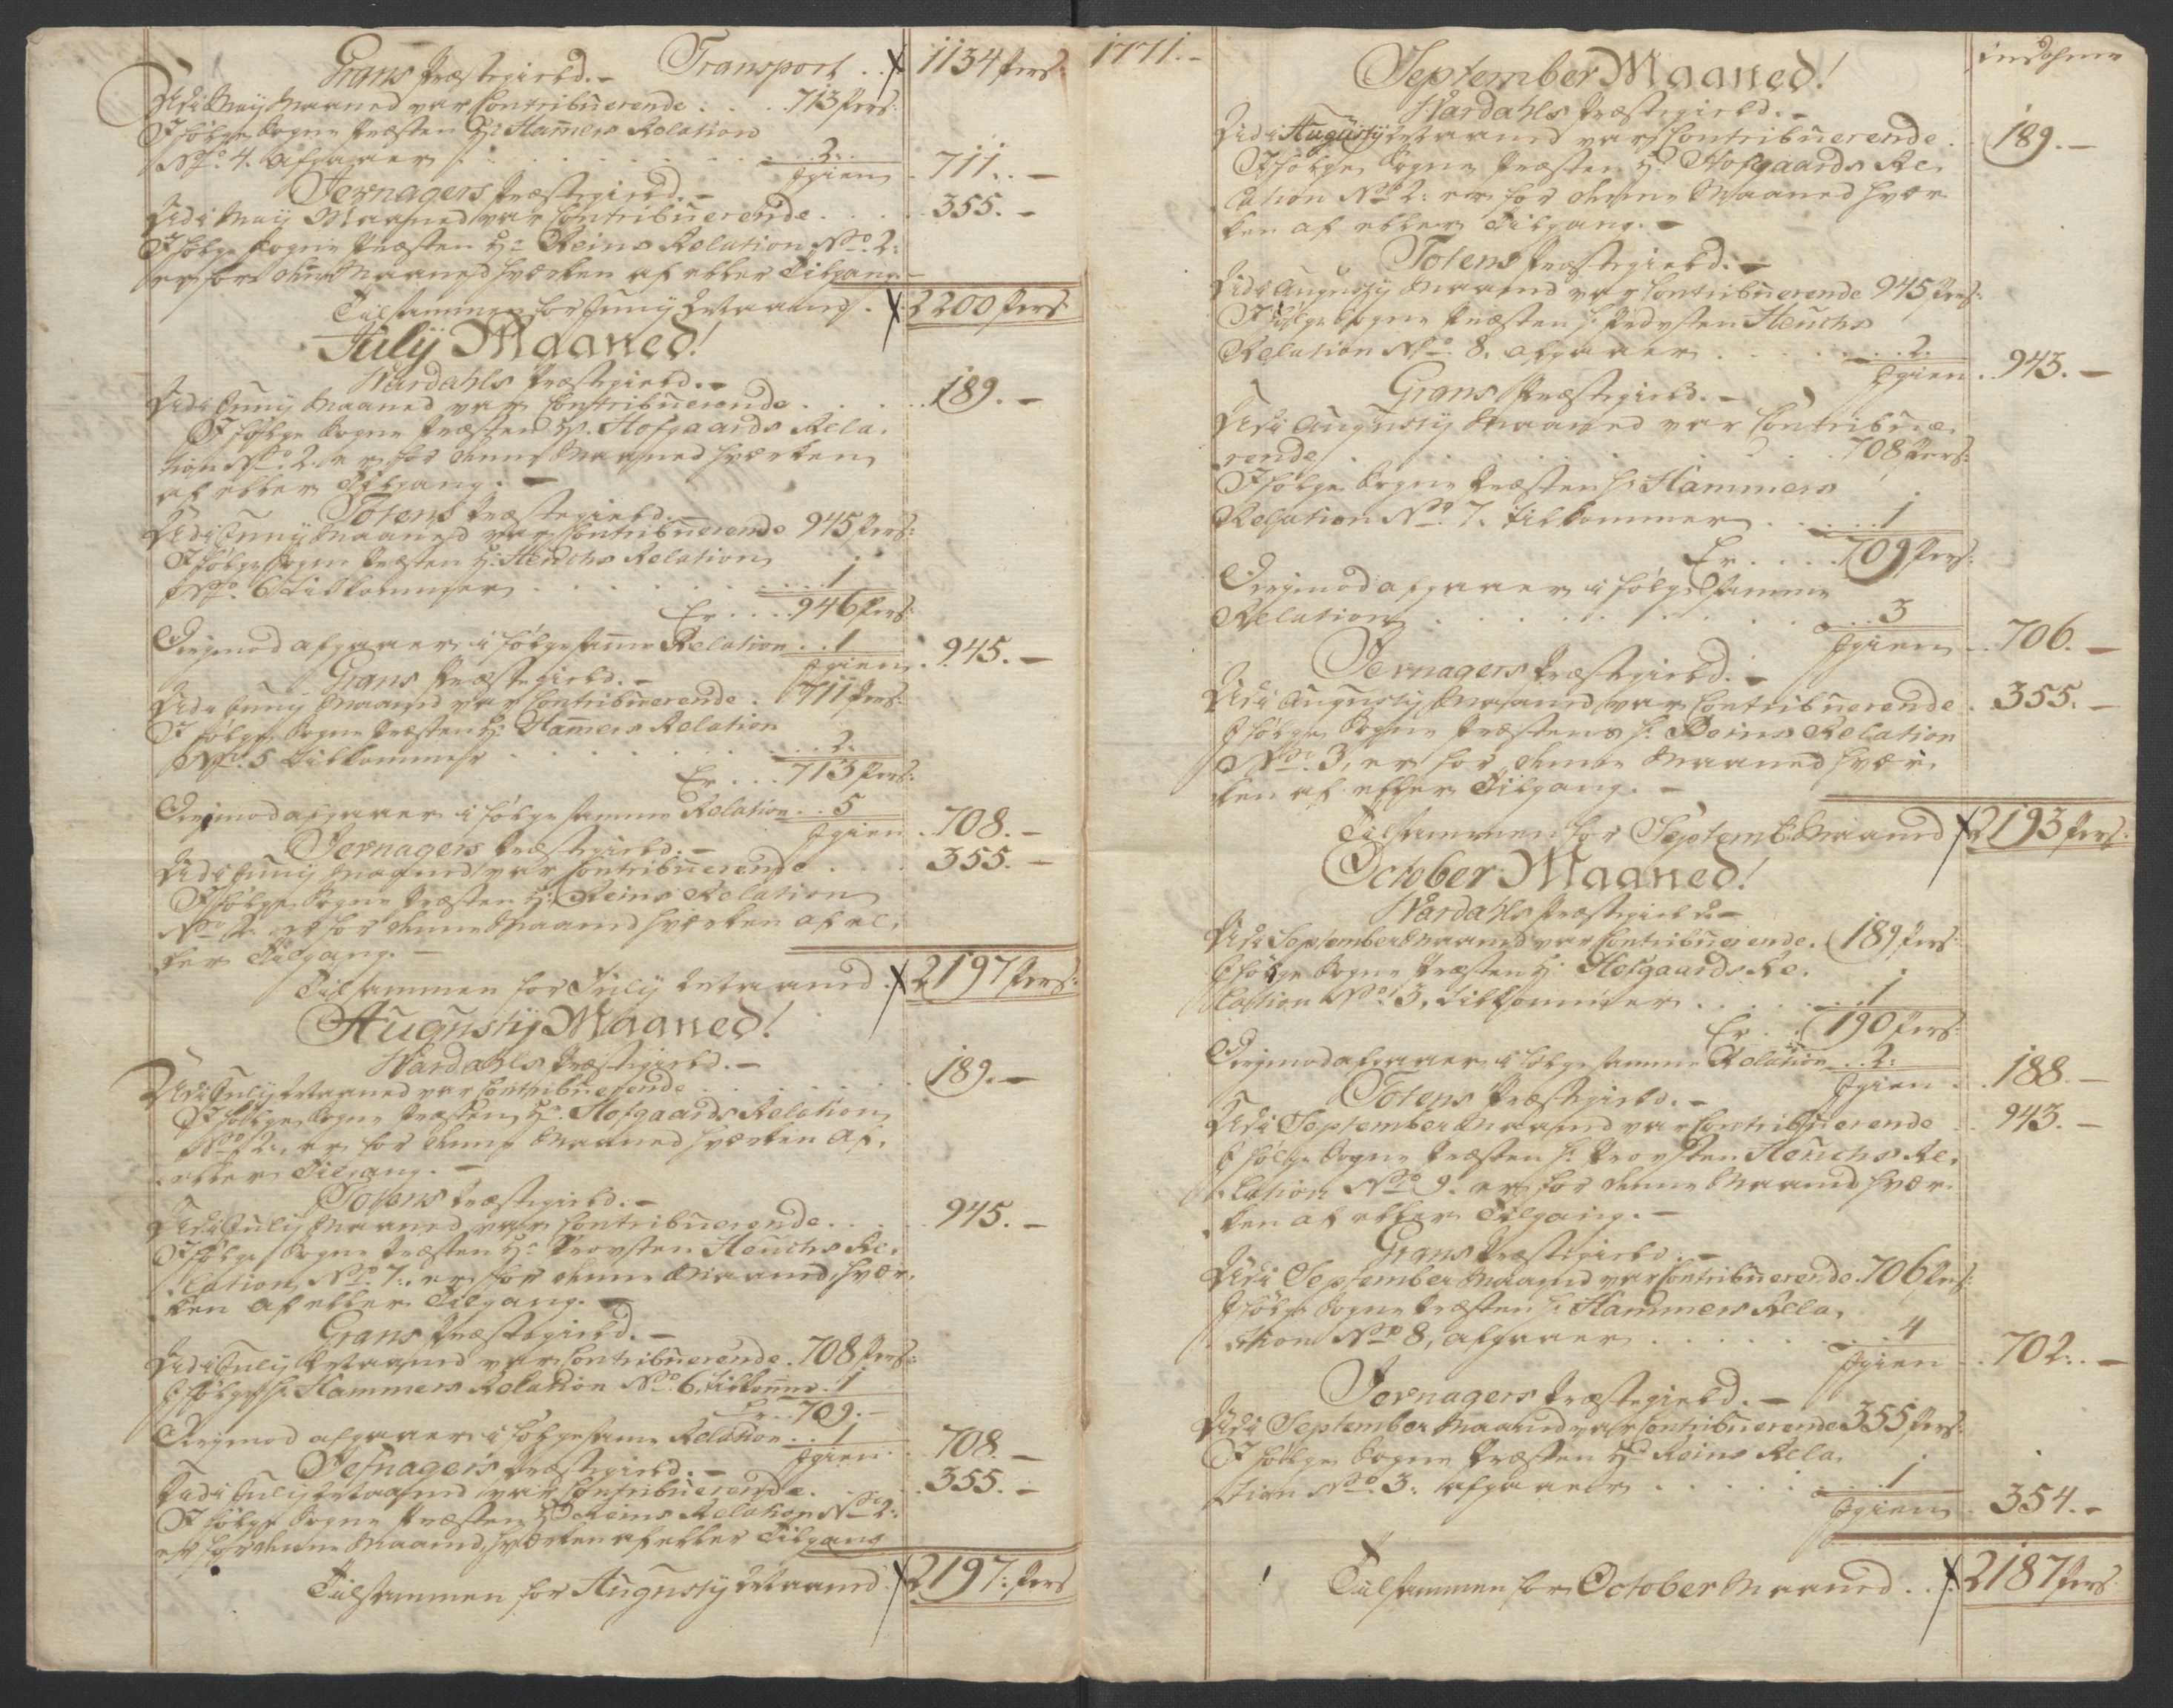 Transport . . 1134 Pers:
Grans Præstegield. –
Udi Maij Maaned var Contribuerende . . . 713 Pers:
Ifølge Sogne Præsten Hr: Hamers Relation
No. 4. afgaaer . . . 2.
Igien . 711. –
Jevnagers Præstegield. –
Udi Maij Maaned var Contribuerende . . . 355. –
Ifølge Sogne Præsten Hr: Reins Relation No. 2:
er for denne Maaned hværken af eller Tilgang –
Tilsammen for Junij Maaned . 2200 Pers
Julij Maaned!
Wardahls Præstegield. –
Udi Junij Maaned var Contribuerende . . . 189. –
Ifølge Sogne Præsten Hr. Hofgaards Rela-
tion No. 2. er for denne Maaned hværken
af eller Tilgang. –
Totens Præstegield. –
Udi Junij Maaned var Contribuerende 945 Pers:
Ifølge Sogne Præsten Hr: Heuchs Relation
No. 6 Tilkommer . . . 1
Er . . . 946 Pers:
Derimod afgaaer i følge samme Relation . . 1
Igien . 945. –
Grans Præstegield. –
Udi Junij Maaned var Contribuerende . 711 Pers:
Ifølge Sogne Præsten Hr: Hamers Relation
No. 5 Tilkommer . . . 2.
Er . . . 713 Pers:
Derimod afgaaer i følge samme Relation . . 5
Igien . 708. –
Jevnagers Præstegield. –
Udi Junij Maaned var Contribuerende . . . 355. –
Ifølge Sogne Præsten Hr: Reins Relation
No. 2. er for denne Maaned hværken af el-
ler Tilgang. –
Tilsammen for Julij Maaned . 2197 Pers:
Augustij Maaned!
Wardahls Præstegield. –
Udi Julij Maaned var Contribuerende . . . 189. –
Ifølge Sogne Præsten Hr. Hofgaards Relation
No. 2., er for denne Maaned hværken af
eller Tilgang. –
Totens Præstegield. –
Udi Julij Maaned var Contribuerende . . . 945. –
Ifølge Sogne Præsten Hr: Provsten Heuchs Re-
lation No. 7. er for denne Maaned hvær-
ken af eller Tilgang. –
Grans Præstegield. –
Udi Julij Maaned var Contribuerende . 708 Pers:
Ifølge Hr: Hammers Relation No. 6, Tilkommer . 1
Er . . 709. –
Derimod afgaaer i følge samme Relation . . 1
Igien . 708. –
Jefnagers Præstegield. –
Udi Julij Maaned var Contribuerende . . . 355. –
Ifølge Sogne Præsten Hr: Reins Relation No. 2:
er for denne Maaned hværken af eller Tilgang
Tilsammen for Augustij Maaned . 2197: Pers
1771. –
September Maaned!
Wardahls Præstegield. –
Udi Augustij Maaned var Contribuerende . . 189. –
Ifølge Sogne Præsten Hr: Hofgaards Re-
lation No. 2: er for denne Maaned hvær-
ken af eller Tilgang. –
Totens Præstegield. –
Udi Augustij Maaned var Contribuerende 945 Pers:
Ifølge Sogne Præsten Hr: Provsten Heuchs
Relation No. 8. afgaaer . . . 2.
Igien . . 943. –
Grans Præstegield. –
Udi Augustij Maaned var Contribue-
rende . . . 708 Pers:
Ifølge Sogne Præsten Hr: Hammers
Relation No. 7. Tilkommer . . . 1
Er . . . 709 Pers:
Derimod afgaaer i følge samme
Relation . . . 3
Igien . . 706. –
Jevnagers Præstegield. –
Udi Augustij Maaned var Contribuerende . 355. –
Ifølge Sogne Præstens Hr: Reins Relation
No. 3. er for denne Maaned hvær-
ken af eller Tilgang. –
Tilsammen for Septemb: Maaned 2193 Pers:
October Maaned!
Wardahls Præstegield –
Udi September Maaned var Contribuerende . 189 Pers:
Ifølge Sogne Præsten Hr: Hofgaards Re-
lation No. 3, Tilkommer . . . 1
Er . . 190 Pers:
Derimod afgaaer i følge samme Relation . . 2:
Igien . . 188. –
Totens Præstegield. –
Udi September Maaned var Contribuerende . . 943. –
Ifølge Sogne Præsten Hr: Provsten Heuchs Re-
lation No. 9. er for denne Maaned hvær-
ken af eller Tilgang. –
Grans Præstegield. –
Udi September Maaned var Contribuerende . 706 Pers:
Ifølge Sogne Præsten Hr: Hammers Rela-
tion No. 8, afgaaer . . . 4
Igien . . 702. –
Jevnagers Præstegield. –
Udi September Maaned var Contribuerende 355 Pers:
Ifølge Sogne Præsten Hr: Reins Rela-
tion No. 3. afgaaer . . . 1
Igien . 354. –
Tilsammen for October Maaned . . 2187 Pers